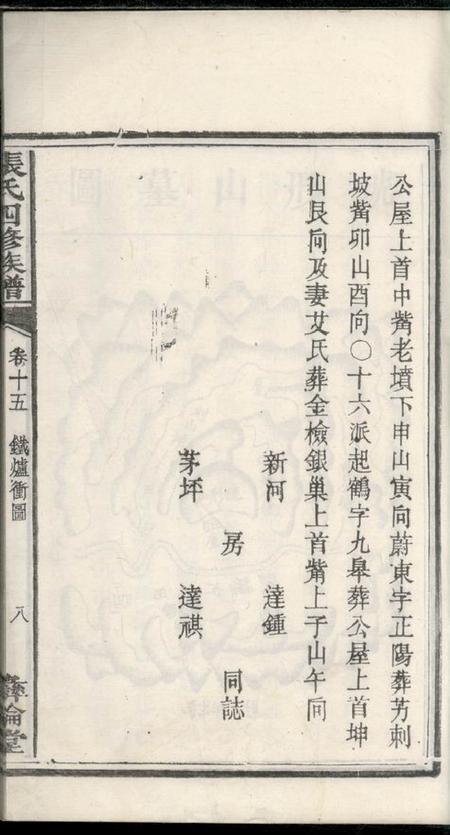 公屋上首中觜老墳下申山寅向蔚東字正陽葬艻刺
坡觜卯山酉向〇十六派起鶴字九皋葬公屋上首坤
山艮向及妻艾氏葬金檢銀巢上首觜上子山午向
新河 達鍾
房 同誌
茅坪 達祺
張氏四修族譜
卷十五 鐵爐衝圖
八
彝倫堂